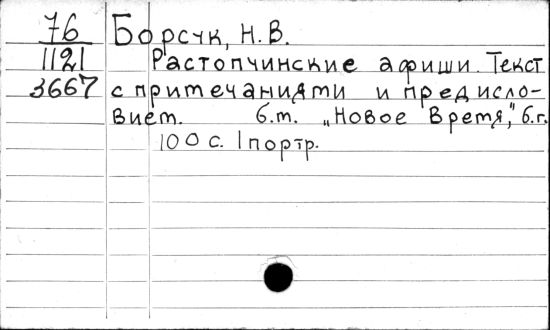 76 Борсук, Н. В.
1121 Растопчинские афиши. Текст
3667 с примечаниями и предисло-
вием. б.м. „Новое Время", б.г.
100 с. 1 портр.